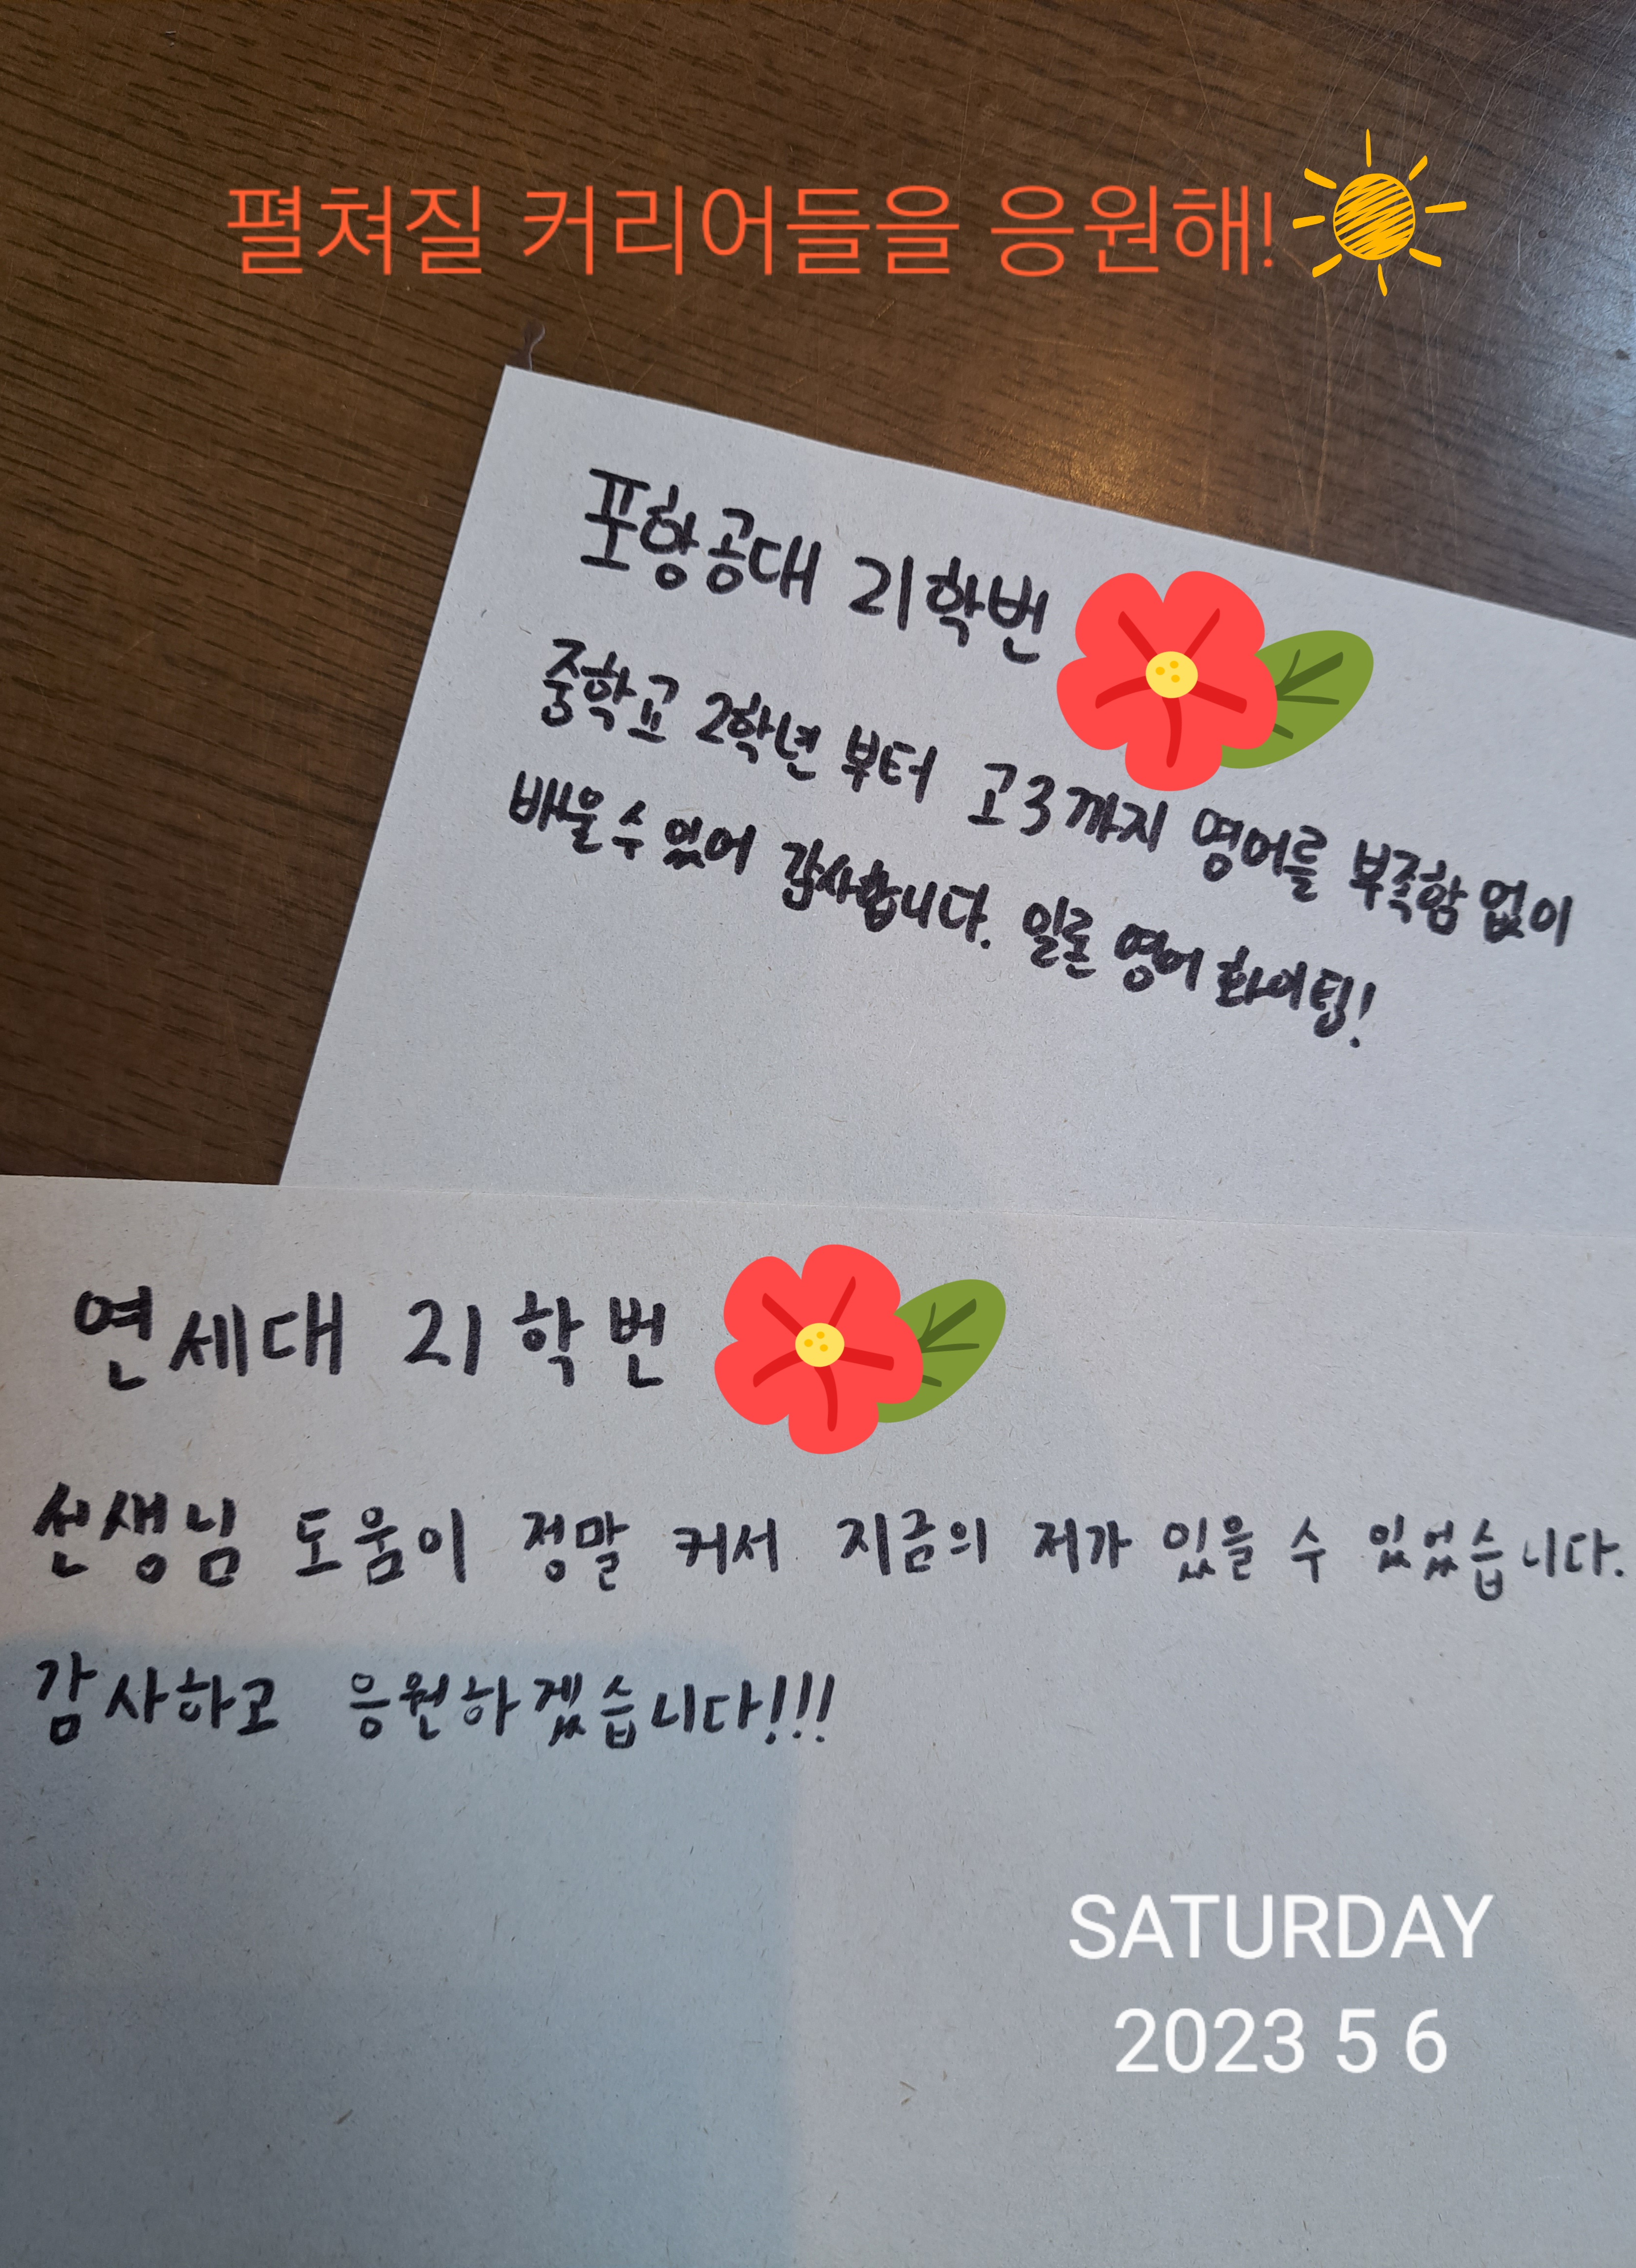 펼쳐질 커리어들을 응원해!
포항공대 21학번
중학교 2학년 부터 고3까지 영어를 부족함 없이
배울 수 있어 감사합니다. 일론 영어 화이팅!
연세대 21학번
선생님 도움이 정말 커서 지금의 저가 있을 수 있었습니다.
감사하고 응원하겠습니다!!!
SATURDAY
2023 5 6